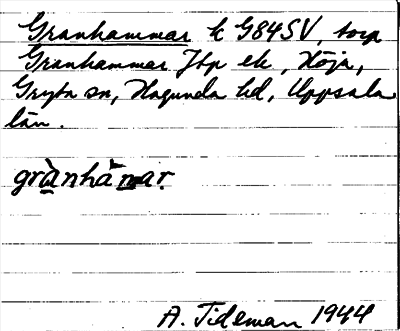 Granhammar k G84SV, torp
Granhammar Jfp ek, Höja,
Gryta sn, Hagunda hd, Uppsala
län.
grànhàmar.
A. Tideman 1944